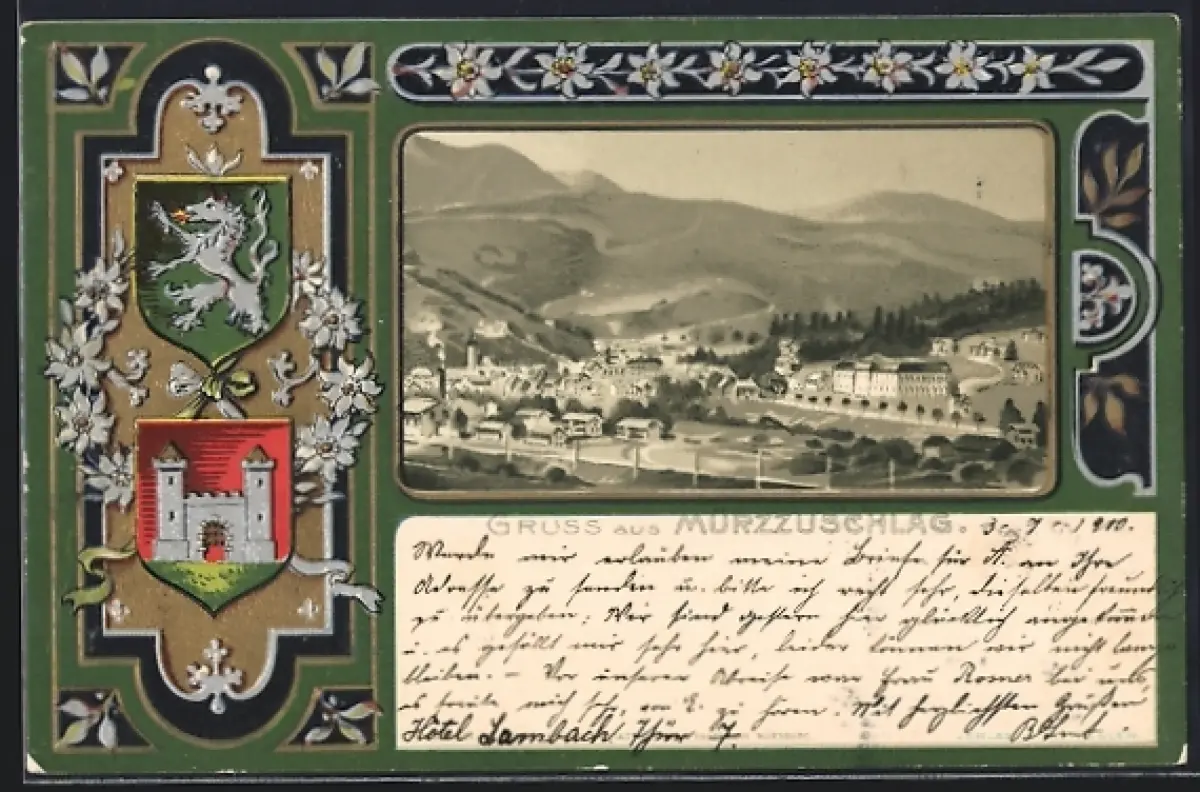 GRUSS AUS MÜRZZUSCHLAG. 3. 7. 1900.
Werde mir erlauben meine Briefe für A. an Ihre
Adresse zu senden u. bitte ich recht sehr, dieselben freundlichst
zu übergeben; Wir sind gestern hier glücklich angekommen
u. es gefällt mir sehr hier, leider können wir nicht lange
bleiben. – Vor unserer Abreise war Frau Romer bei uns
es freute mich sehr, von E. zu hören. Mit herzlichsten Grüßen
Hôtel Lambach Thür 7.